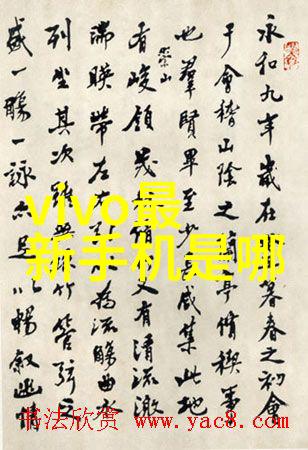 永和九年歲在暮春之初會
于會稽山陰之蘭亭脩稧事
也羣賢畢至少咸集此地
有崇山峻領茂脩又有清流激
湍暎帶左右引為流觴曲水
列坐其次雖無竹管弦之
盛一觴一詠亦足以暢敘幽情
vivo最
新手机是哪
书法欣赏 www.yac8.com